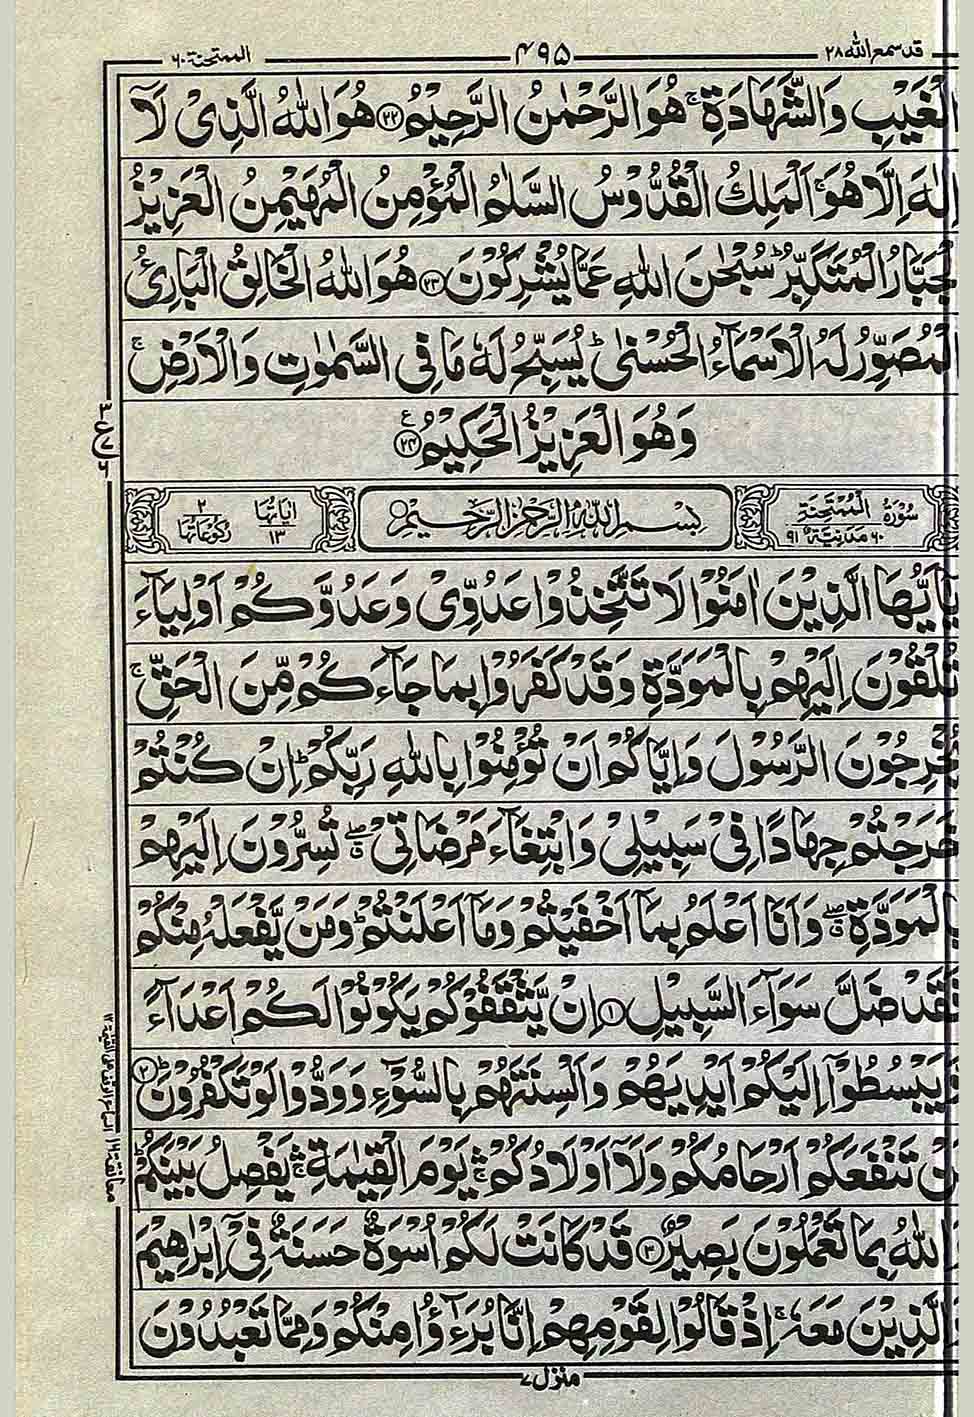 قد سمع الله ٢٨
۴۹۵
الممتحنة ٦٠
الْغَيْبِ وَالشَّهَادَةِ ۚ هُوَ الرَّحْمٰنُ الرَّحِيْمُ ﴿٢٢﴾ هُوَ اللّٰهُ الَّذِىْ لَآ
اِلٰهَ اِلَّا هُوَ ۚ اَلْمَلِكُ الْقُدُّوْسُ السَّلٰمُ الْمُؤْمِنُ الْمُهَيْمِنُ الْعَزِيْزُ
جَبَّارُ الْمُتَكَبِّرُ ؕ سُبْحٰنَ اللّٰهِ عَمَّا يُشْرِكُوْنَ ﴿٢٣﴾ هُوَ اللّٰهُ الْخَالِقُ الْبَارِئُ
الْمُصَوِّرُ لَهُ الْاَسْمَآءُ الْحُسْنٰى ؕ يُسَبِّحُ لَهٗ مَا فِى السَّمٰوٰتِ وَالْاَرْضِ ۚ
وَهُوَ الْعَزِيْزُ الْحَكِيْمُ ﴿٢٤﴾ ع
سُوْرَةُ الْمُمْتَحِنَةِ مَدَنِيَّةٌ ٦٠ ٩١
بِسْمِ اللّٰهِ الرَّحْمٰنِ الرَّحِيْمِ
اٰيَاتُهَا ١٣
رُكُوْعَاتُهَا ٢
يٰۤاَيُّهَا الَّذِيْنَ اٰمَنُوْا لَا تَتَّخِذُوْا عَدُوِّىْ وَعَدُوَّكُمْ اَوْلِيَآءَ
تُلْقُوْنَ اِلَيْهِمْ بِالْمَوَدَّةِ وَقَدْ كَفَرُوْا بِمَا جَآءَكُمْ مِّنَ الْحَقِّ ۚ
يُخْرِجُوْنَ الرَّسُوْلَ وَاِيَّاكُمْ اَنْ تُؤْمِنُوْا بِاللّٰهِ رَبِّكُمْ ؕ اِنْ كُنْتُمْ
خَرَجْتُمْ جِهَادًا فِىْ سَبِيْلِىْ وَابْتِغَآءَ مَرْضَاتِىْ ۖ ق تُسِرُّوْنَ اِلَيْهِمْ
بِالْمَوَدَّةِ ۖ ق وَاَنَا اَعْلَمُ بِمَاۤ اَخْفَيْتُمْ وَمَاۤ اَعْلَنْتُمْ ؕ وَمَنْ يَّفْعَلْهُ مِنْكُمْ
فَقَدْ ضَلَّ سَوَآءَ السَّبِيْلِ ﴿١﴾ اِنْ يَّثْقَفُوْكُمْ يَكُوْنُوْا لَكُمْ اَعْدَآءً
وَّيَبْسُطُوْۤا اِلَيْكُمْ اَيْدِيَهُمْ وَاَلْسِنَتَهُمْ بِالسُّوْٓءِ وَوَدُّوْا لَوْ تَكْفُرُوْنَ ؕ ﴿٢﴾
لَنْ تَنْفَعَكُمْ اَرْحَامُكُمْ وَلَاۤ اَوْلَادُكُمْ ۛۚ يَوْمَ الْقِيٰمَةِ ۛۚ يَفْصِلُ بَيْنَكُمْ ؕ
وَاللّٰهُ بِمَا تَعْمَلُوْنَ بَصِيْرٌ ﴿٣﴾ قَدْ كَانَتْ لَكُمْ اُسْوَةٌ حَسَنَةٌ فِىْۤ اِبْرٰهِيْمَ
وَالَّذِيْنَ مَعَهٗ ۚ اِذْ قَالُوْا لِقَوْمِهِمْ اِنَّا بُرَءٰٓؤُا مِنْكُمْ وَمِمَّا تَعْبُدُوْنَ
منزل ٧